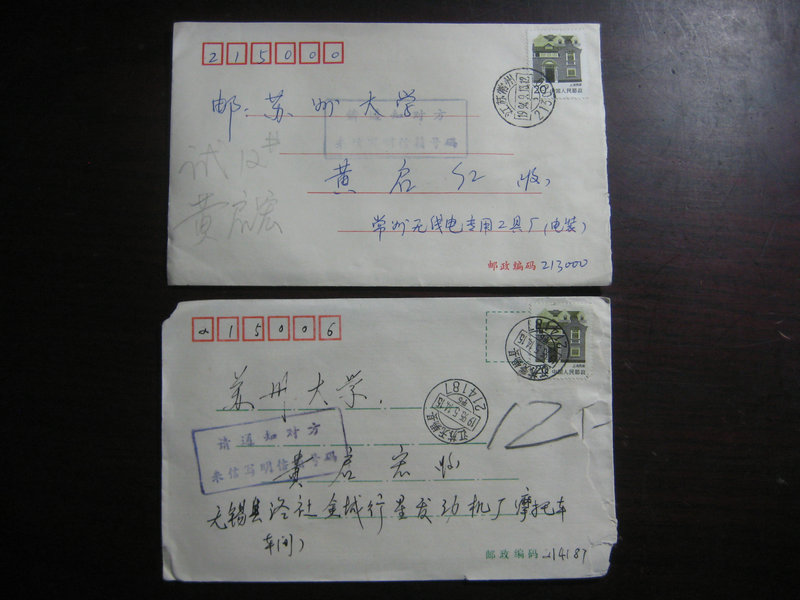 215000
20
中国人民邮政
江苏常州
213000
邮:苏州大学
请通知对方
来信写明信箱号码
试12#
黄启宏
黄启红 收
常州无线电专用工具厂(电装)
邮政编码 213000
215006
中国人民邮政
苏州大学
江苏无锡县
214187
12
请通知对方
来信写明信箱号码
黄启宏 收
无锡县洛社金城行星发动机厂摩托车
车间)
邮政编码 214187